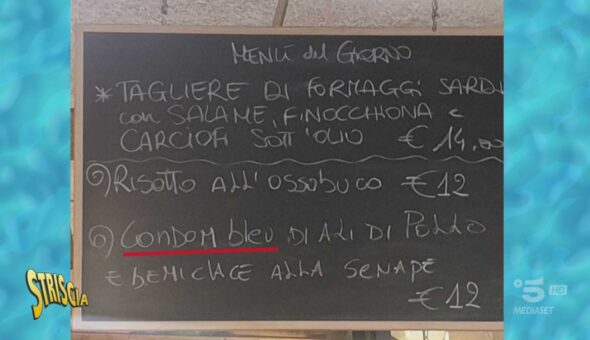 MENÙ del GIORNO
* TAGLIERE DI FORMAGGI SARDI
con SALAME, FINOCCHIONA e
CARCIOFI SOTT'OLIO €14,00
RISOTTO ALL'OSSOBUCO €12
CONDOM bleu DI ALI DI POLLO
E DEMICLACE ALLA SENAPE
€12
STRISCIA
5 HD
MEDIASET